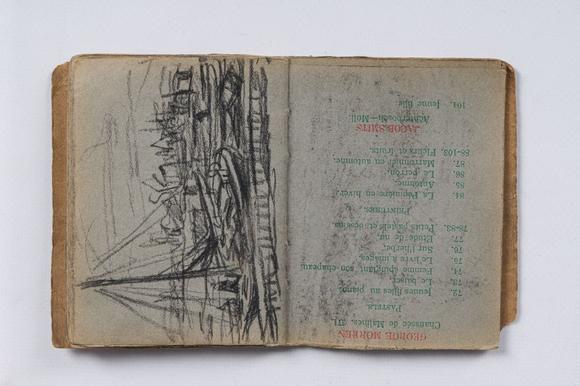 GEORGE MORREN
Chaussée de Malines, 271
PASTELS.
72. Jeunes filles au piano.
73. Le baiser.
74. Femme épinglant son chapeau
75. Le livre à images.
76. Sur l'herbe.
77. Etude de nu.
78-83. Petits pastels et dessins.
PEINTURES.
84. La Pépinière en hiver.
85. Automne.
86. Le perron.
87. Marronnier en automne.
88-103. Fleurs et fruits.
JACOB SMITS
Achterbosch—Moll.
104. Jeune fille